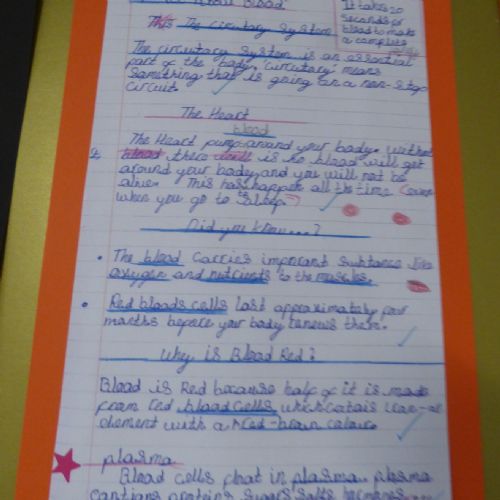 About Blood
It takes 20
seconds for
blood to make
a complete
The Circutary System
The circutary system is an essential
part of the body. 'Circutary' means
something that is going on a non-stop
circuit.
The Heart
blood
The Heart pump around your body. Without
blood there is no blood will get
around your body and you will not be
alive. This has to happen all the time (even
when you go to sleep
Did you know...?
• The blood carries imporant subtance like
oxygen and nutrients to the muscles.
• Red bloods cells last approximately four
months before your body renews them.
Why is Blood Red?
Blood is Red because half of it is made
from red blood cells which
element with a Red-brown colour.
plasma
Blood cells float in plasma. plasma
proteins sugars salts